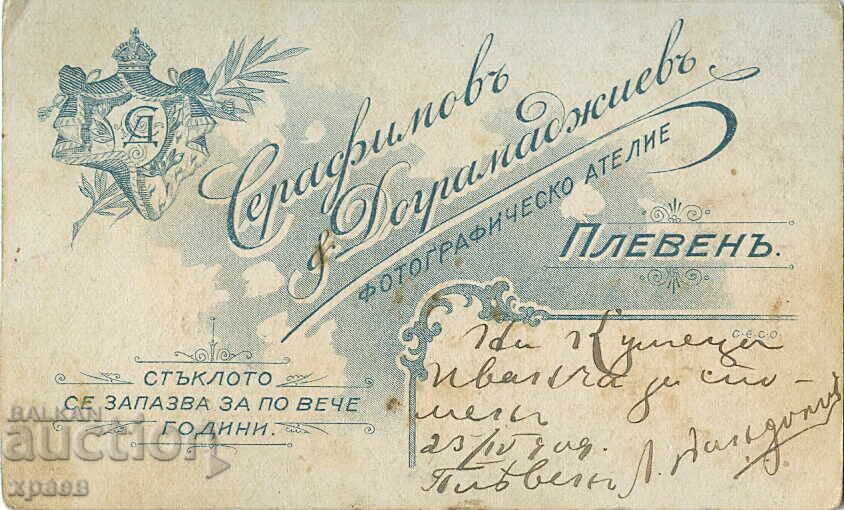 СД
Серафимовъ
& Дограмаджиевъ
ФОТОГРАФИЧЕСКО АТЕЛИЕ
ПЛЕВЕНЪ.
С.Е.С.О.
СТЪКЛОТО
СЕ ЗАПАЗВА ЗА ПО ВЕЧЕ
ГОДИНИ.
На
Иванка за спо-
менъ
23/IV
Плѣвенъ Л.
BALKAN
auction
храев